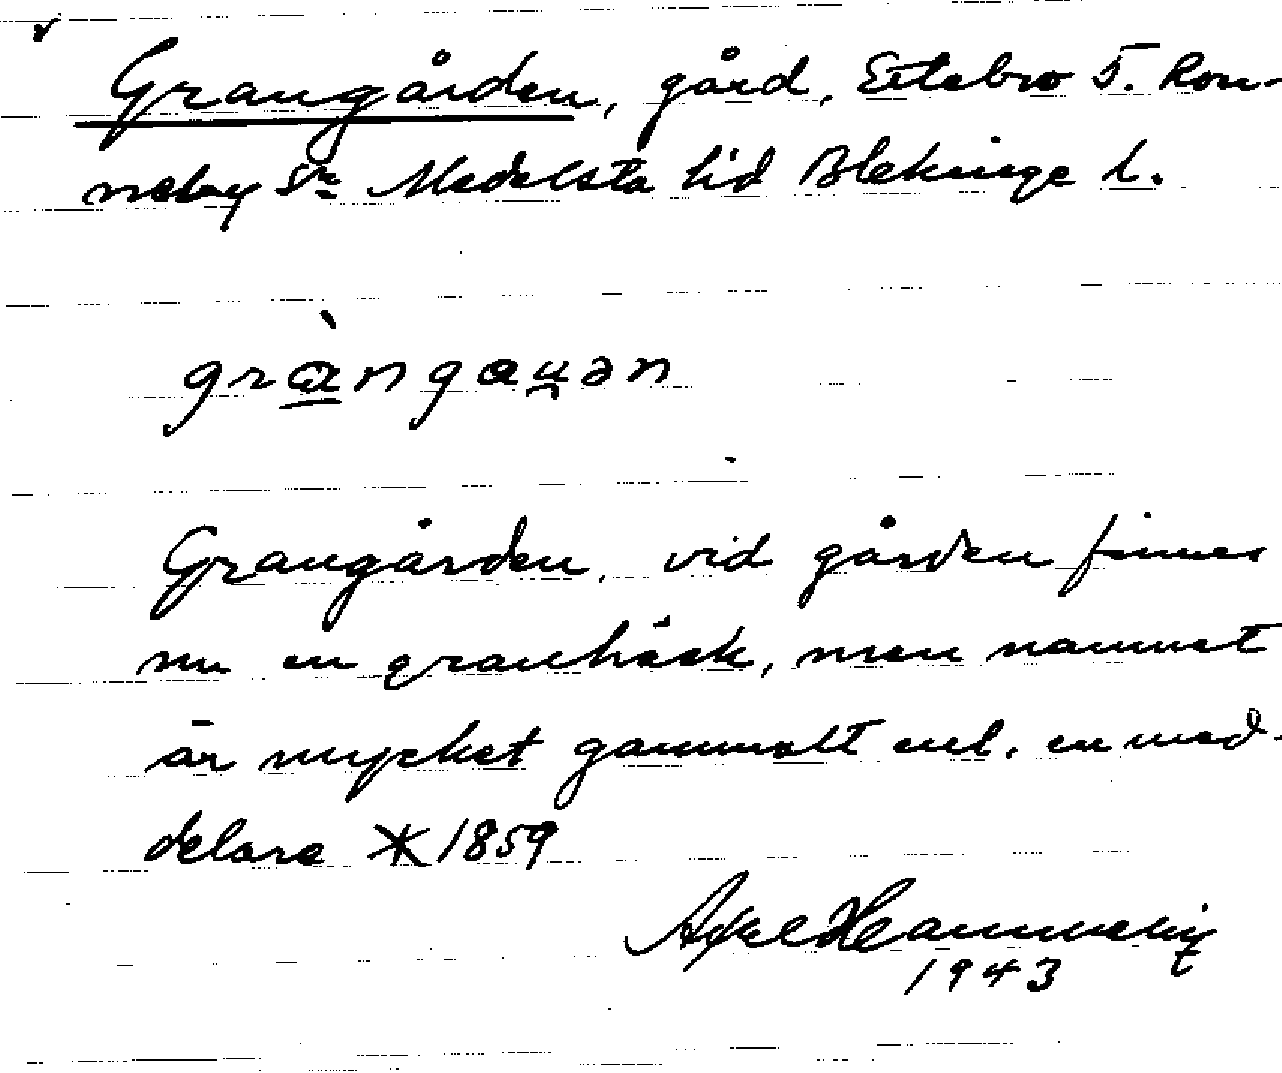 Grangården, gård, Ertebro 5. Ron-
neby sn Medelsta hd Blekinge l.
gràngau̯ən
Grangården, vid gården finnes
nu en granhäck, men namnet
är mycket gammalt enl. en med-
delare * 1859
Axel
1943